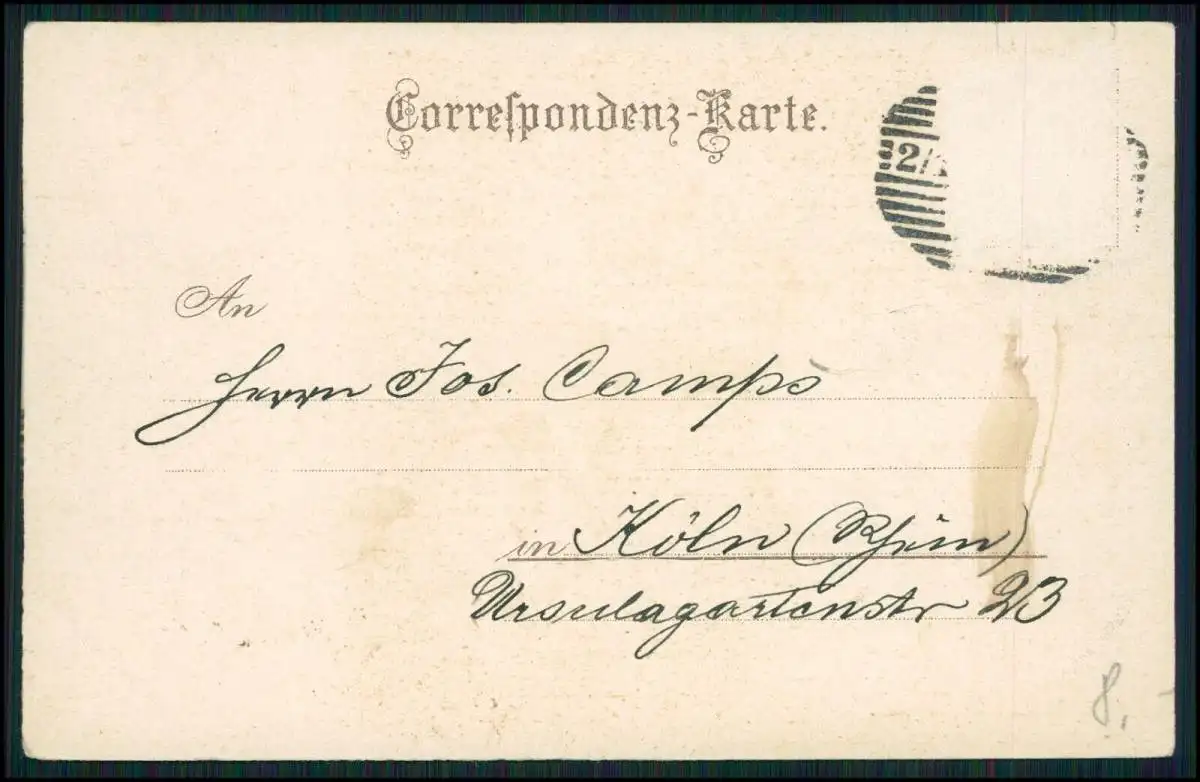 Correſpondenz-Karte.
2
An
Herrn Jos. Camps
in Köln (Rhein)
Ursulagartenstr 23
8,-